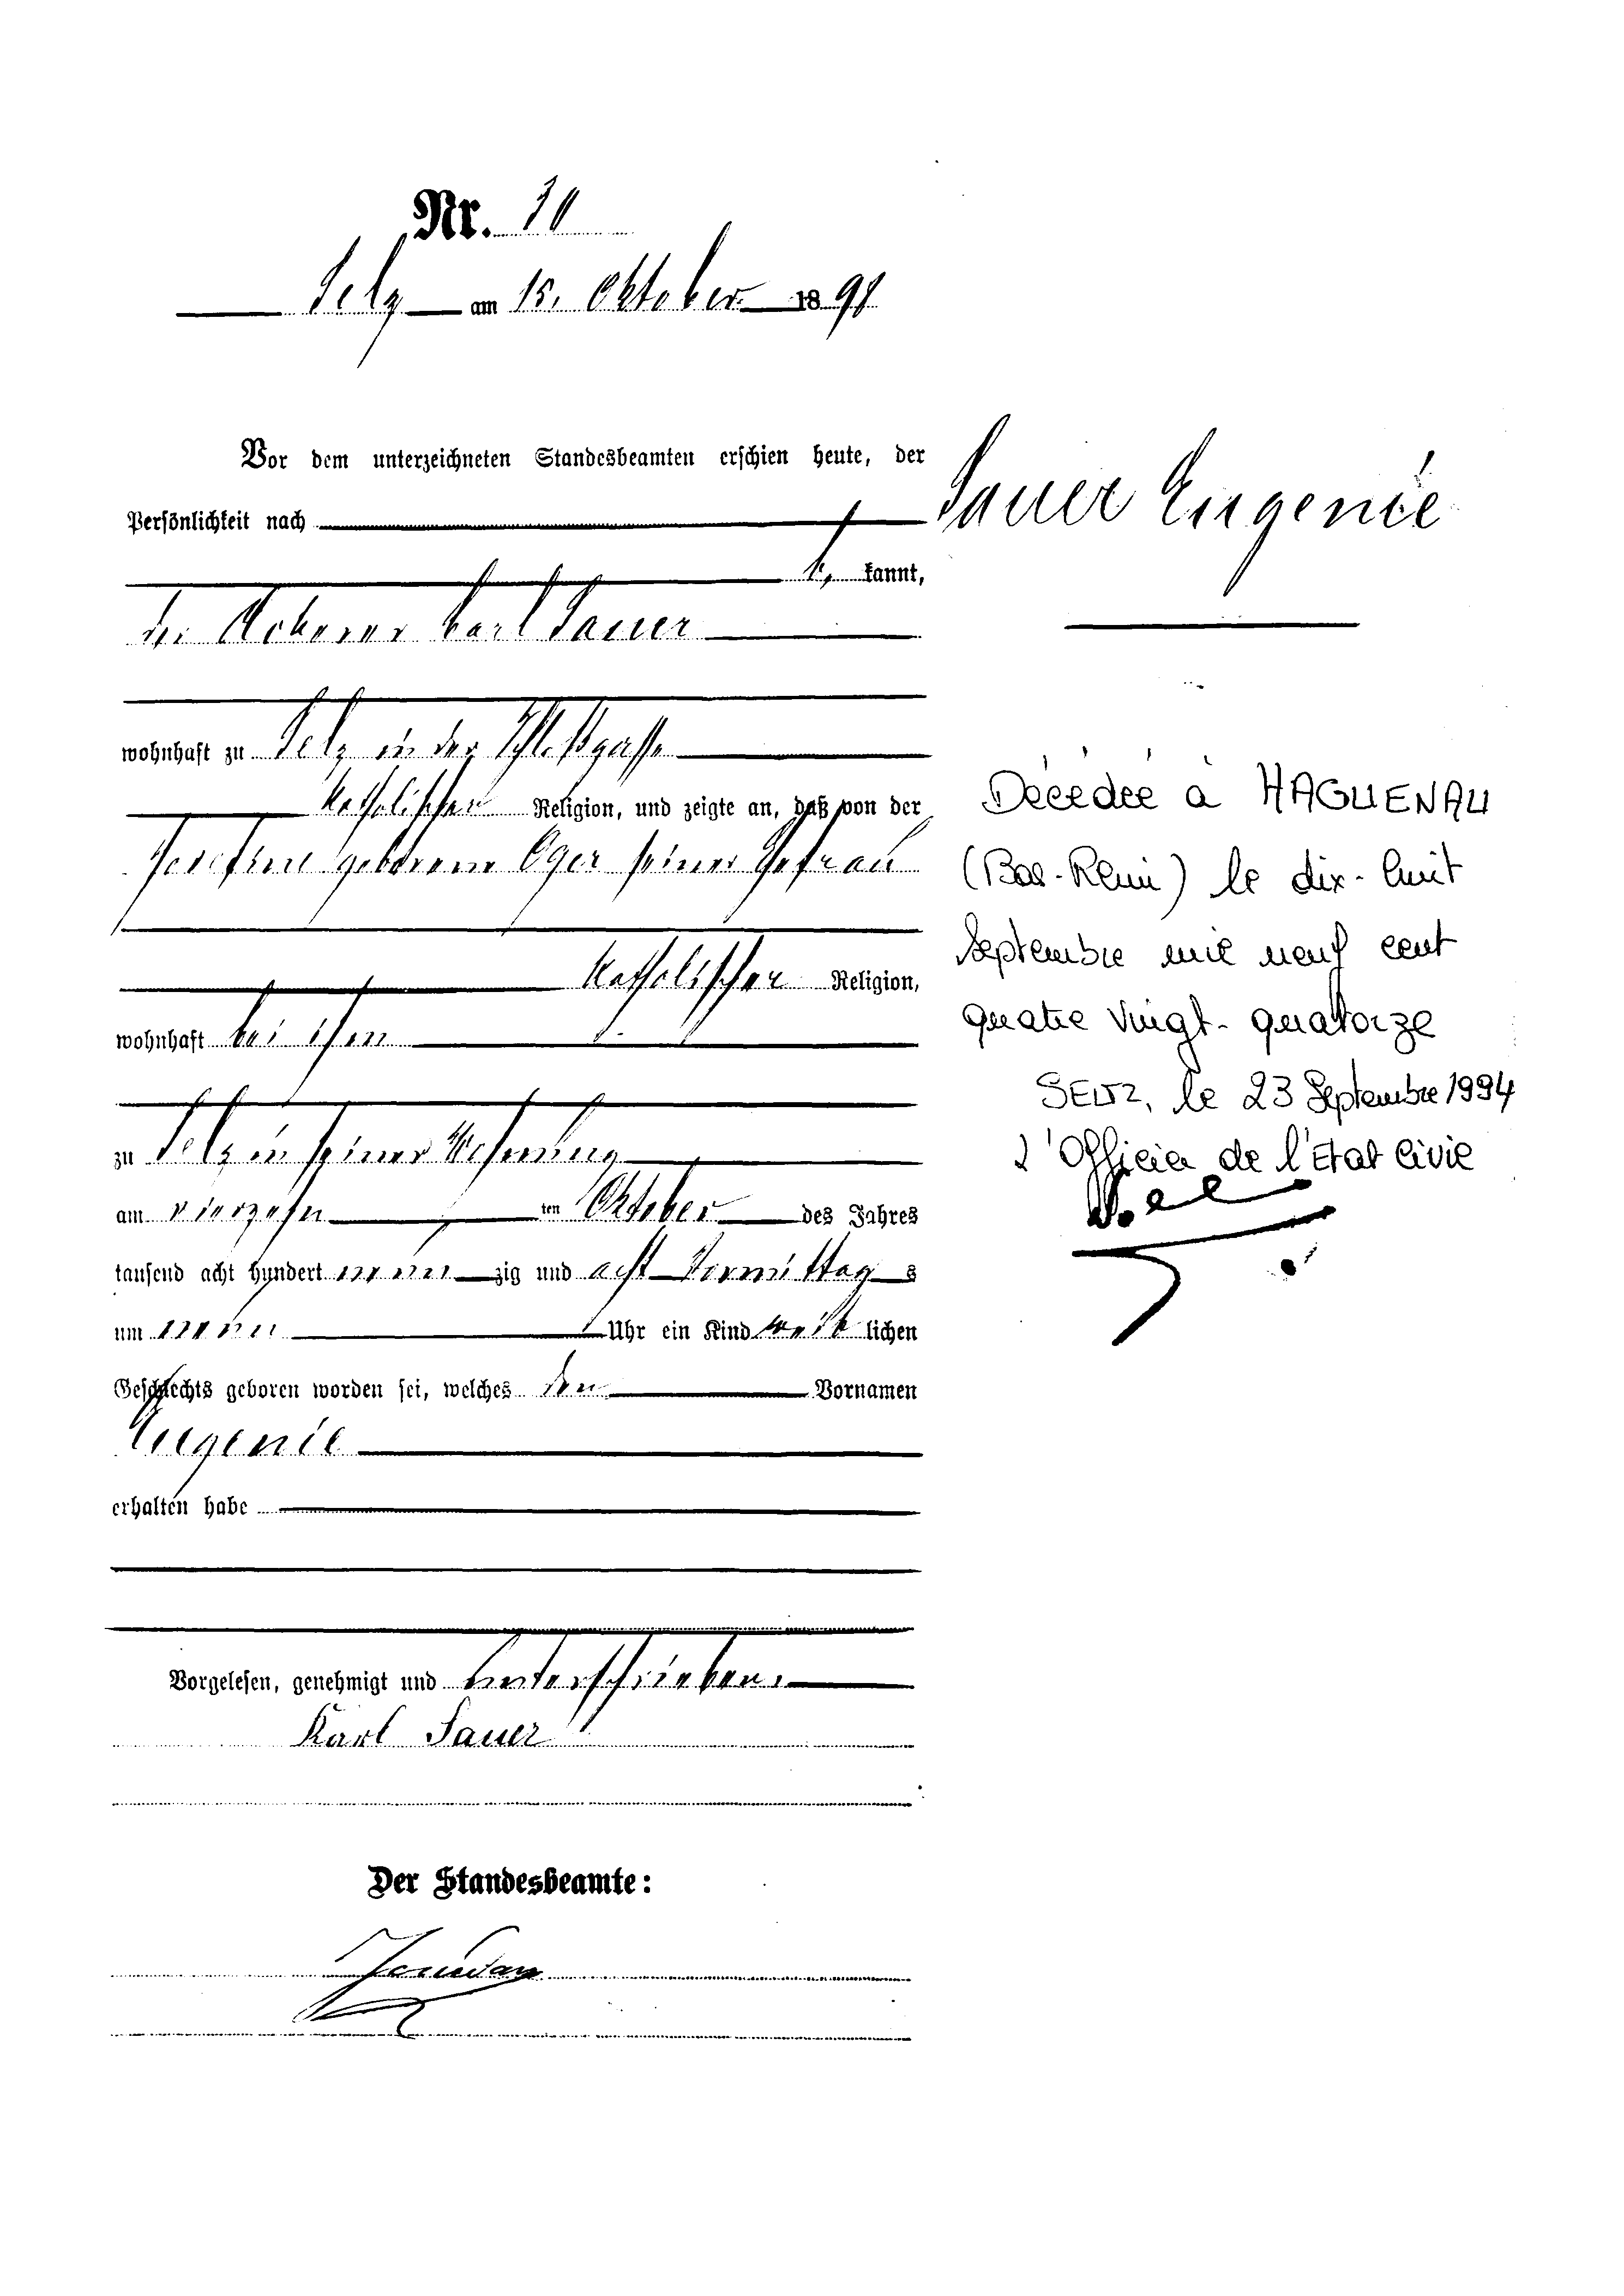 Nr. 70
Selz am 15. Oktober 1898
Vor dem unterzeichneten Standesbeamten erschien heute, der
Persönlichkeit nach
be kannt,
der Ackerer Karl Sauer
wohnhaft zu Selz in der Schloßgasse
katholischer Religion, und zeigte an, daß von der
Josefine geborene Oger seiner Ehefrau
katholischer Religion,
wohnhaft bei ihm
zu Selz in seiner Wohnung
am vierzehn ten Oktober des Jahres
tausend acht hundert neun zig und acht Vormittag s
um neun Uhr ein Kind weib lichen
Geschlechts geboren worden sei, welches den Vornamen
Eugenie
erhalten habe
Vorgelesen, genehmigt und unterschrieben.
Karl Sauer
Der Standesbeamte:
Sauer Eugenie
Décédée à HAGUENAU
(Bas-Rhin) le dix-huit
Septembre mil neuf cent
quatre vingt-quatorze
SELTZ, le 23 Septembre 1994
L'Officier de l'Etat Civil